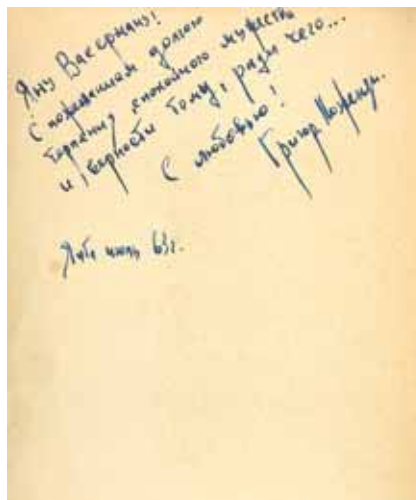 Яну Вассерману!
С пожеланием долгого
терпения, спокойного мужества
и верности тому, ради чего...
С любовью!
Григор Поженян.
Ялта июль 63г.